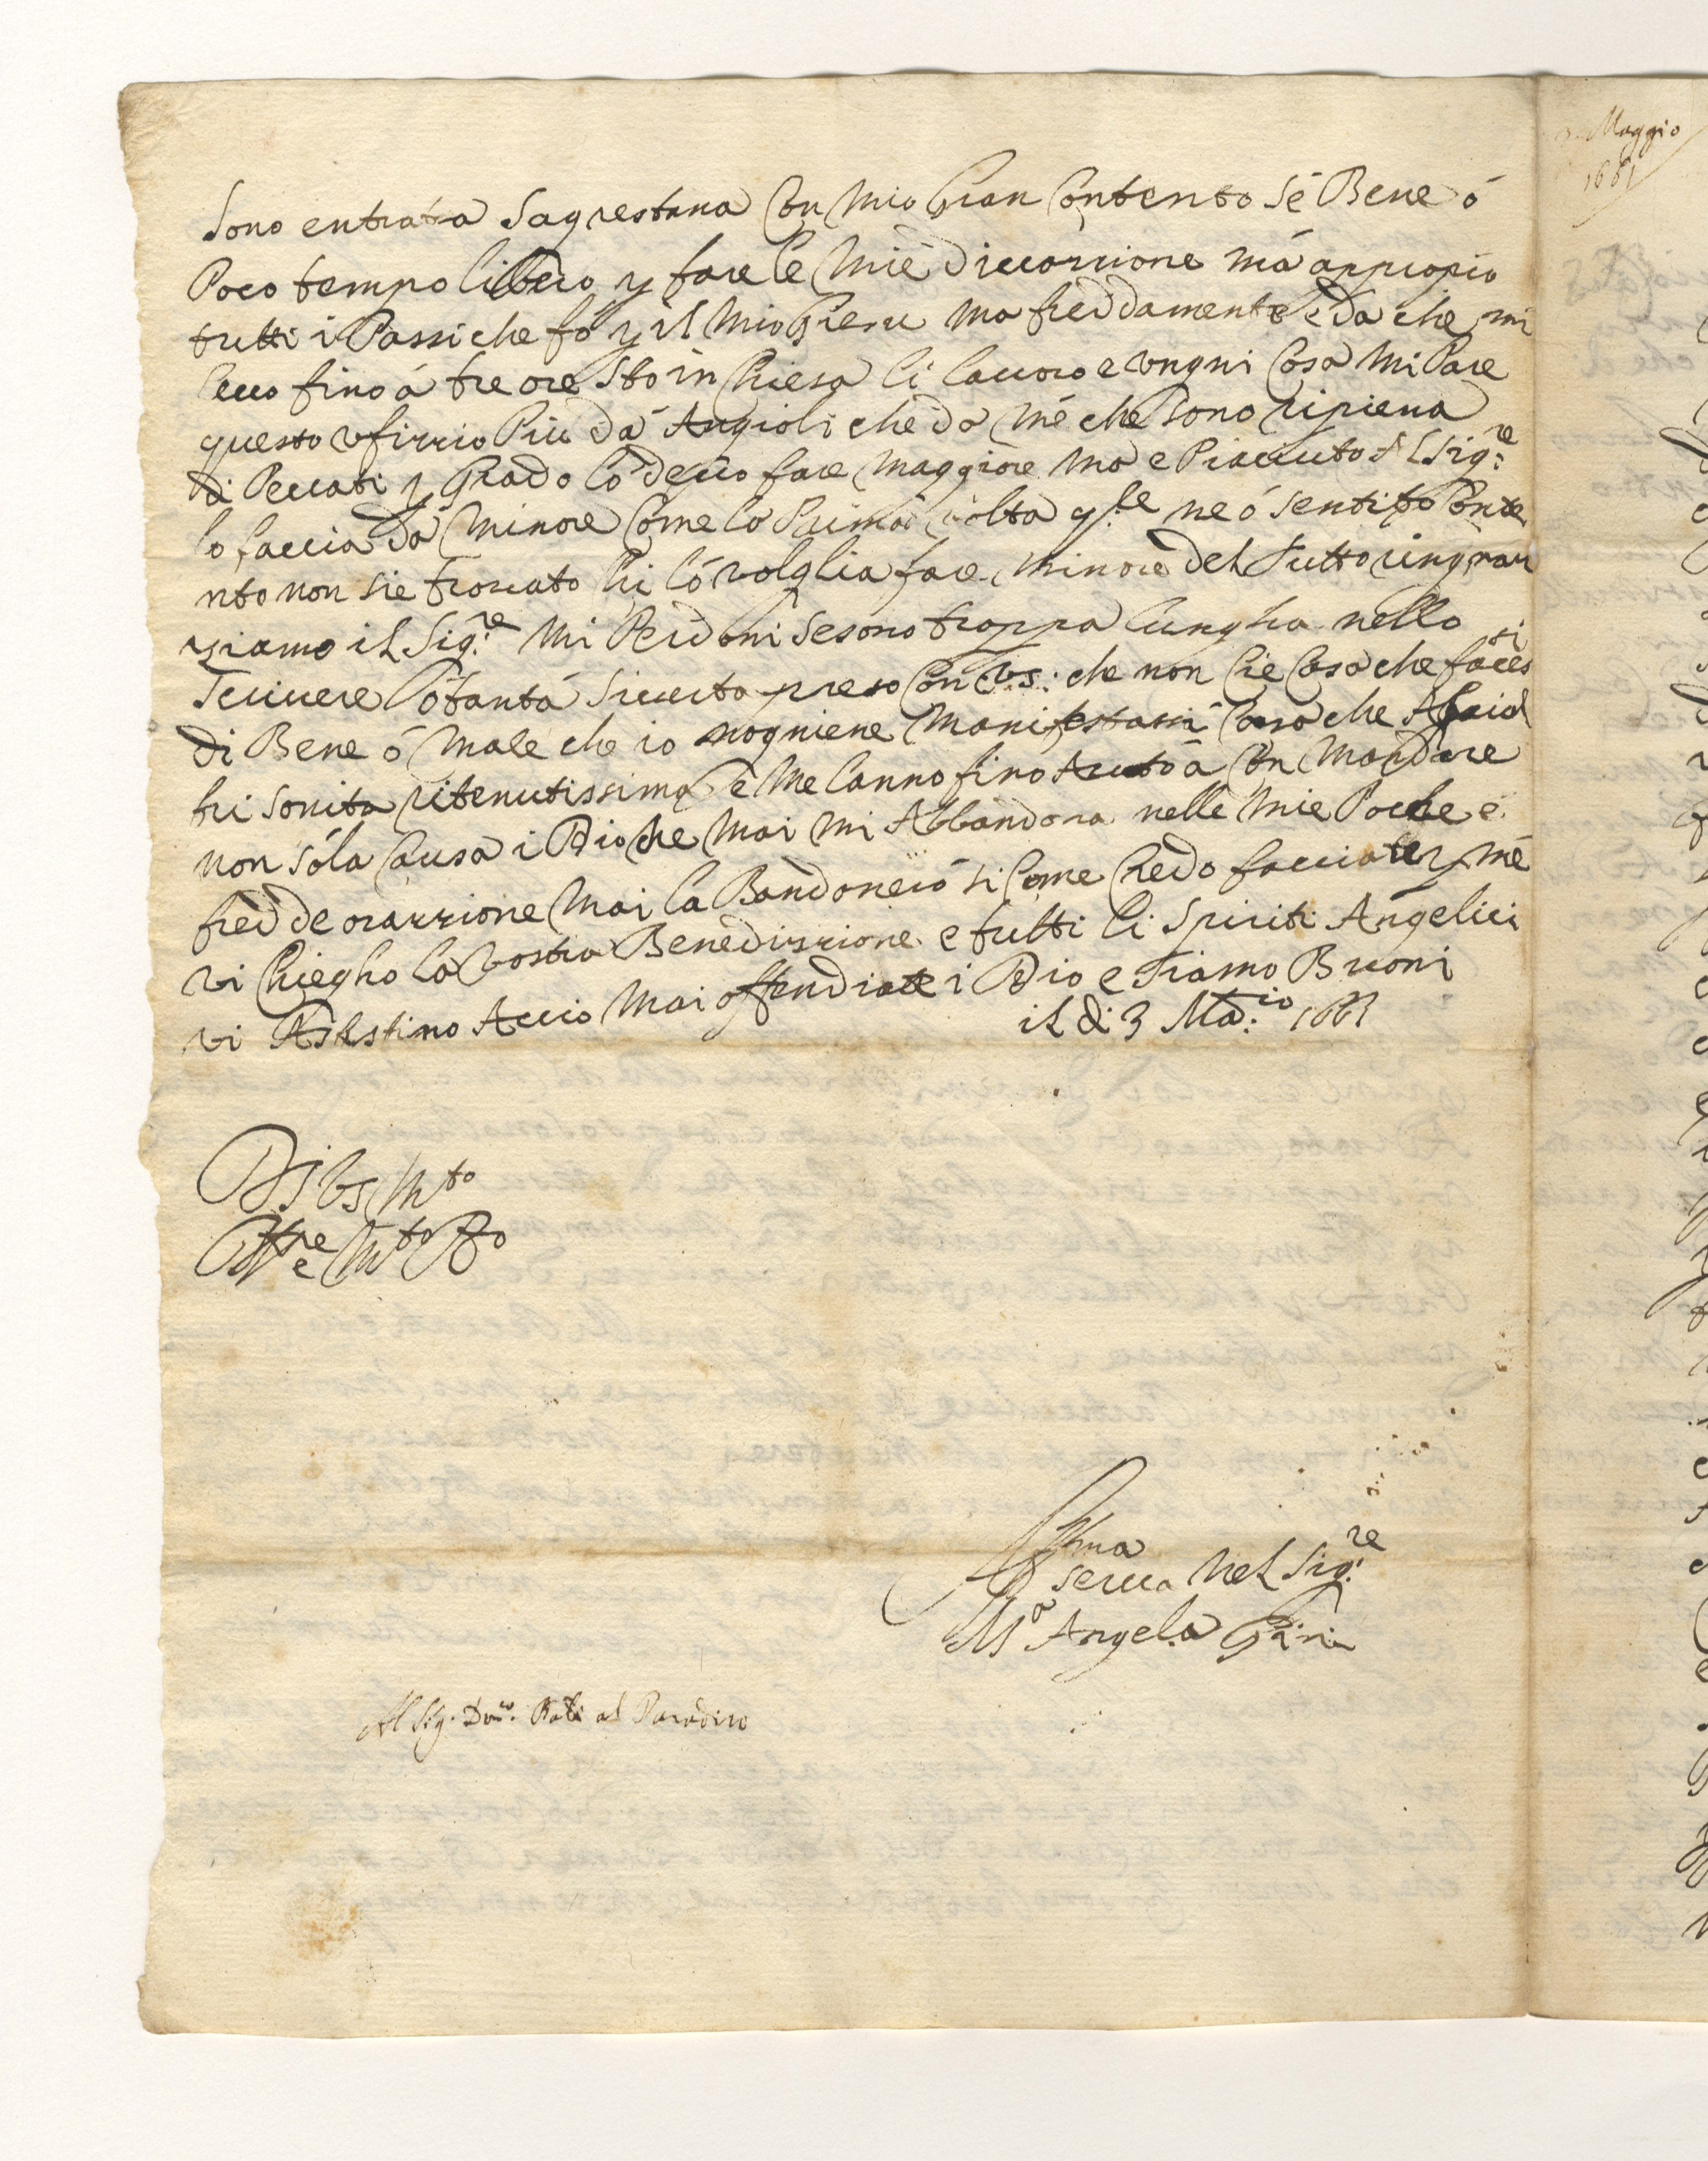 Sono entrata Sagrestana Con Mio Gran Contento Sé Bene ó
Poco tempo libero p fare le Mie divozzione má appropio
tutti i Passi che fó p il Mio Giesu ma freddamente e da che mi
levo fino á tre ore Sto in Chiesa li lavoro e ongni Cosa Mi Pare
questo ufizzio Piú dá Angioli che da mé che Sono ripiena
di Peccati p Grado ló devo fare Maggiore ma e Piaciuto al Sig:re
lo faccia dá Minore Come la Prima volta p.le ne ó sentito Conte
nto non sie trovato Chi ló volglia fare Minore del Tutto ringrar
ziamo il Sig:re Mi Perdoni Se sono troppa lungha nello
Scrivere ló tantá Sicurta preso Con V.S: che non Cie Cosa che faces si
di Bene ó Male che io nogniene Manifestassi Cosa che Ahaid
tri Sonita ritenutissima e Me lanno fino Auto á Con Mandare
non Sóla Causa i Dio che Mai mi Abbandona nelle Mie Poche e
fredde orazzione Mai la Bandoneró si Come Credo facciate p mé
vi Chiegho la Vostra Benedizzione e tutti li Spiriti Angelici
vi Assistino Accio Mai offendiate i Dio e Siamo Buoni
il di 3 Ma:io 1661
Di VS Mto
Mto Rdo
Affma
Serva Nel Sig:re
Ma Angela Gini
Al Sig. Dom.co Rati al Paradiso
3 Maggio
1661